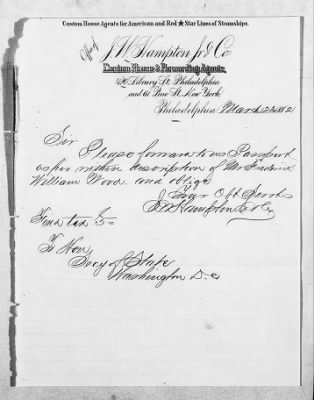 Custom House Agents for American and Red Star Lines of Steamships.
Office of
J W Hampton Jr & Co
Custom House & Forwarding Agents,
Library St. Philadelphia
and 61 Pine St. New York.
Philadelphia March 23 1882
Sir
Please forward to us Passport
as per within description of Mr Frederick
William Wood and oblige
Your Obt Servts
J W Hampton Jr & Co
To Hon
Secy of State
Washington D.C